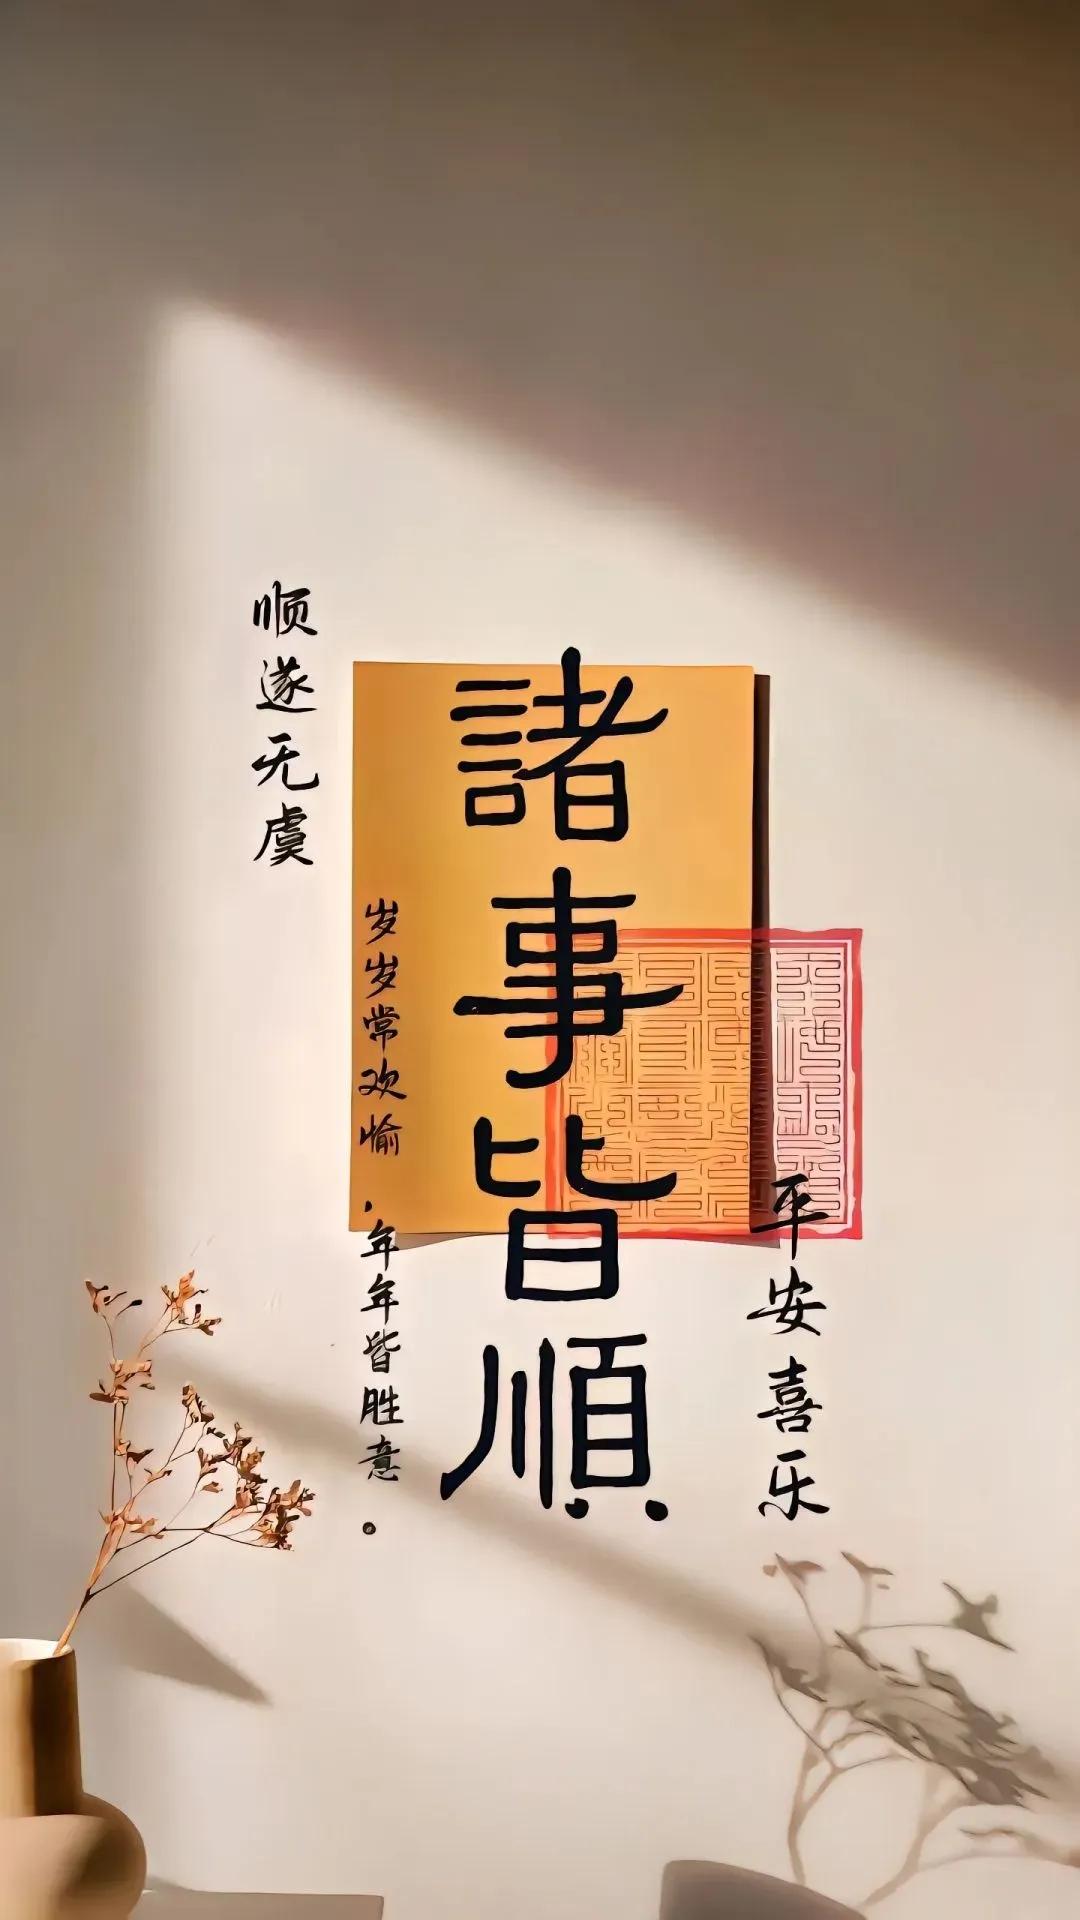 諸事皆順
順遂无虞
岁岁常欢愉
，年年皆胜意。
平安喜乐